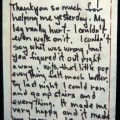 Thankyou so much for
helping me yesterday. My
leg really hurt - I couldn't
even walk on it. I couldn't
say what was wrong but
you figured it out right
away. With that little pop
everything felt much better.
By last night I could run,
and go on stairs and
everything. It made me
so happy and it made